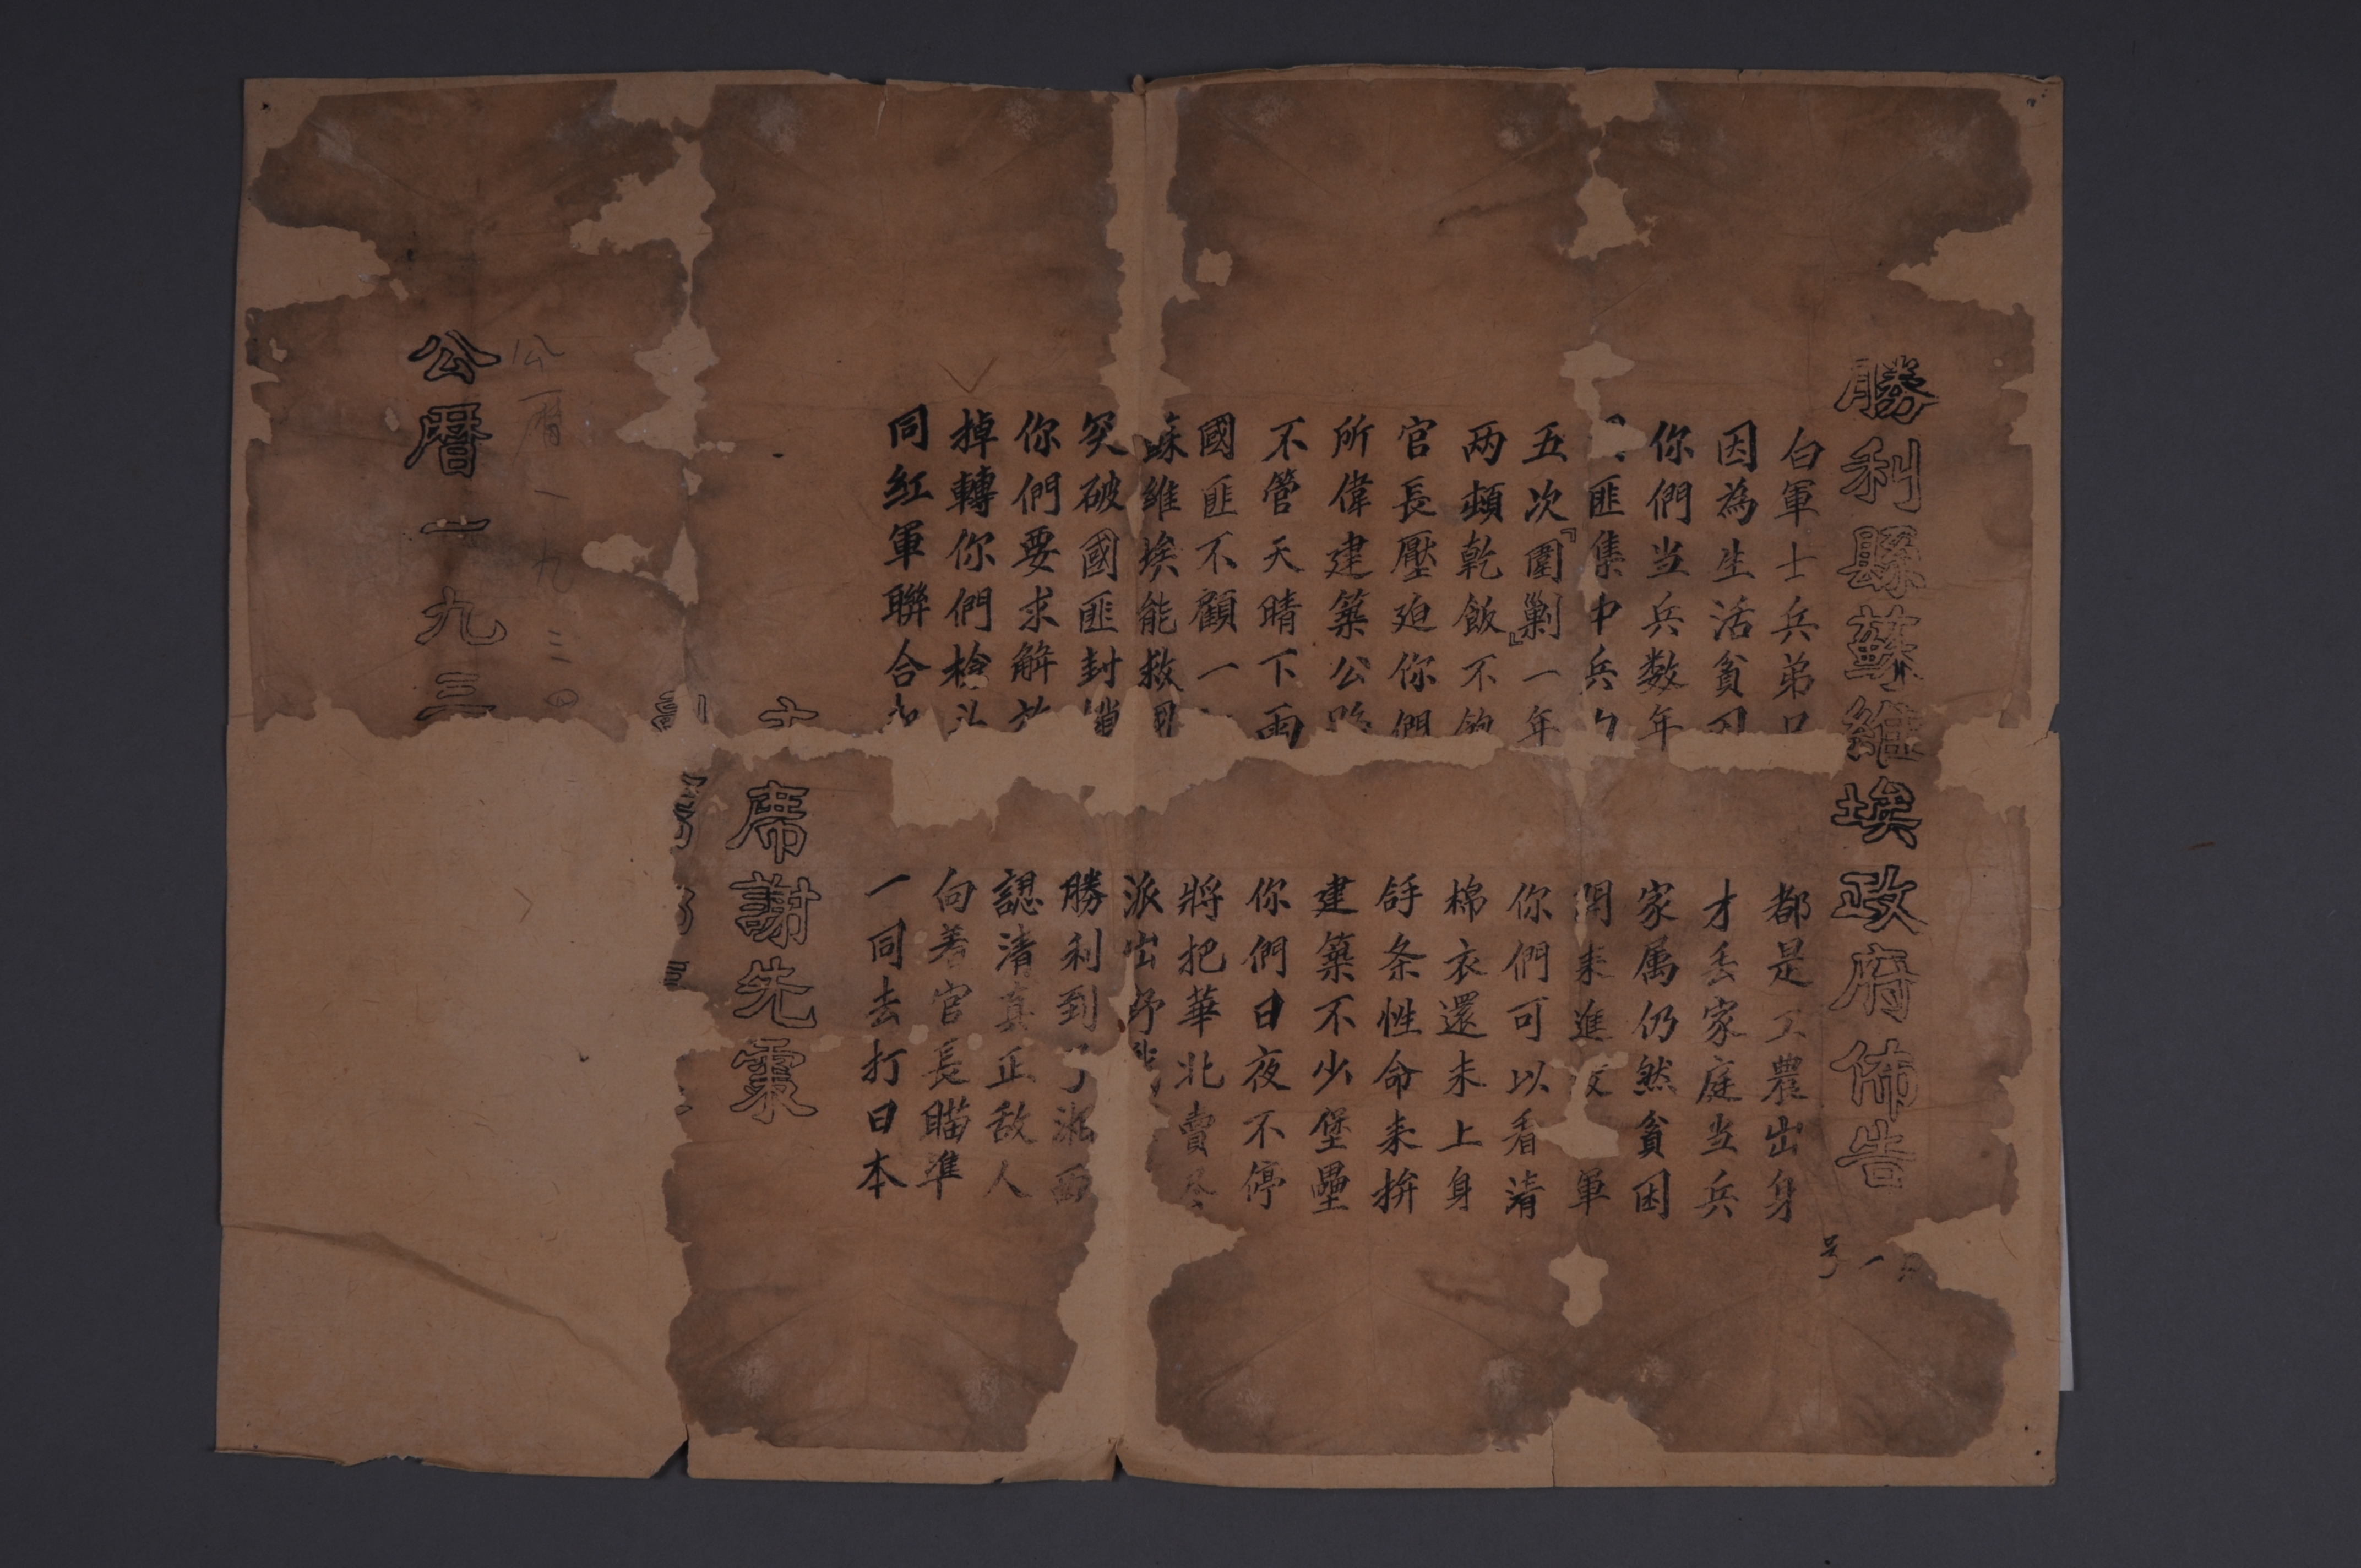 勝利縣蘇維埃政府佈告
一号
白軍士兵弟兄 都是工農出身
因為生活貧困 才丢家庭当兵
你們当兵数年 家属仍然貧困
匪集中兵力 開来進攻 軍
五次『圍剿』一年 你們可以看清
两頓乾飯不夠 棉衣還未上身
官長壓迫你們 舒条性命来拚
所偉建築公路 建築不少堡壘
不管天晴下雨 你們日夜不停
國匪不顧一 將把華北賣尽
蘇維埃能救國 派出
突破國匪封鎖 勝利到了湘西
你們要求解放 認清真正敌人
掉轉你們槍头 向着官長瞄準
同紅軍聯合 一同去打日本
主席謝先
公暦一九三
公曆一九三四